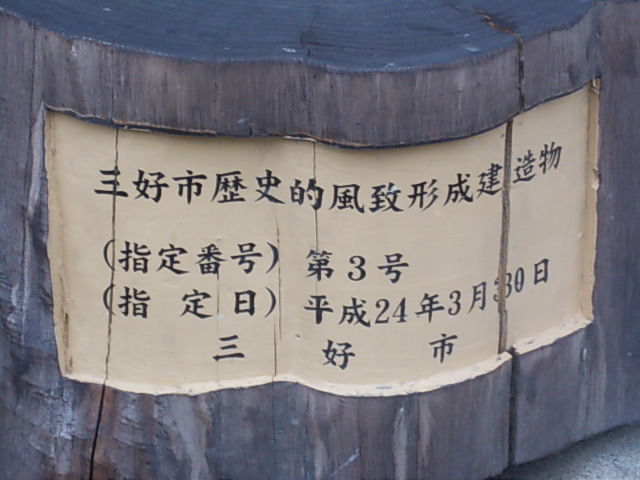 三好市歴史的風致形成建造物
(指定番号) 第3号
(指定日) 平成24年3月30日
三好市